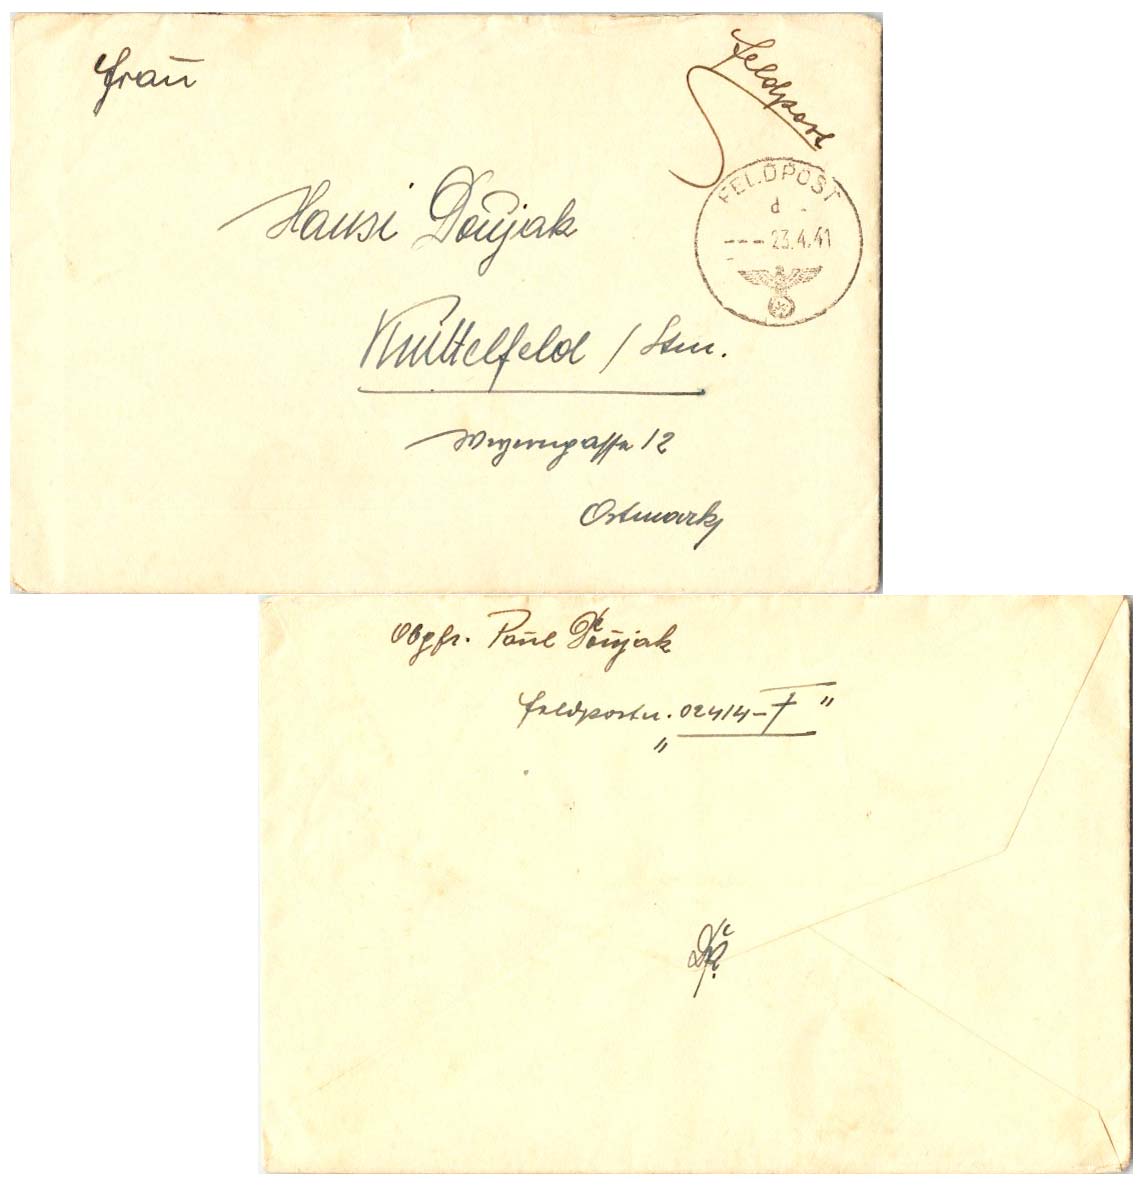 Frau
Feldpost
FELDPOST
d
--- 23.4.41
Hansi Doujak
Knittelfeld / Stm.
Weyerngasse 12
Ostmark
Obgfr. Paul Doujak
Feldpostn. 02414-F